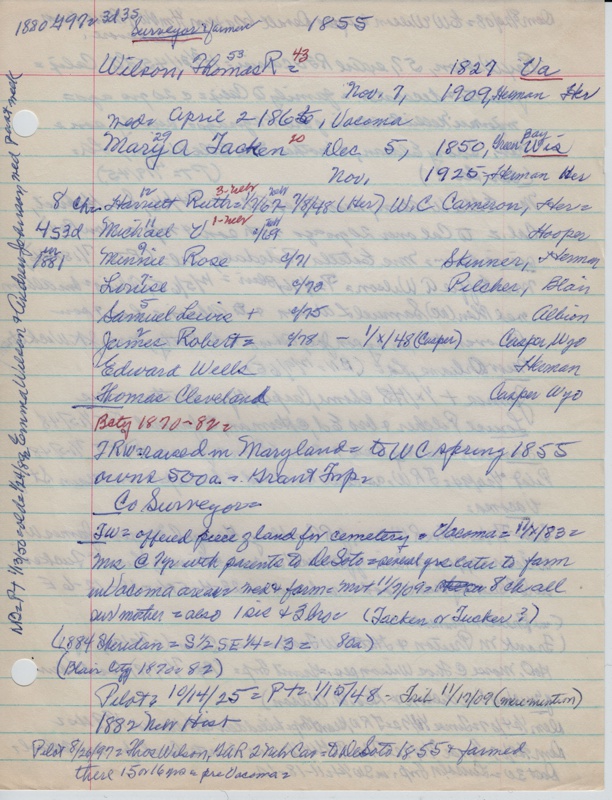 1880 497=3d35
Surveyor & farmer 1855
Wilson, Thomas R = 53 43 1827 Va
Nov. 7, 1909, Herman Her
med= April 2 1865, Vacoma
Mary A Tacken 29 20 Dec 5, 1850, Green Bay Wis
Nov, 1925, Herman Her
8 ch= Harriett Ruth= 12 3-Neb 7/8/48 (Her) W.C. Cameron, Her=
4s3d Michael 11 1-Neb 2/69 Hooper
1881 Minnie Rose 9 2/71 Skinner, Herman
Louise 7 2/73 Pilcher, Blair
Samuel Lewis + 5 2/75 Albion
James Robert= 2 2/78 - 1/x/48 (Casper) Casper Wyo
Edward Wells Herman
Thomas Cleveland Casper Wyo
Bcty 1870-82=
TRW=raised in Maryland= to WC spring 1855
owns 500a= Grant Twp=
Co Surveyor=
TW= offered piece of land for cemetery= Vacoma= 11/x/83=
Mrs C 7yr with parents to DeSoto= several yrs later to farm
in Vacoma area= med & farm= 11/7/09= 8 ch all
sur mother= also 1 sis & 3 bro= (Tacken or Tucker?)
(1884 Sheridan= S½ SE¼=13= 80a)
(Blair City 1870=82)
Pilot= 10/14/25= P+= 1/15/48- Trib 11/17/09 (mere mention)
1882 Neb Hist
Pilot 8/26/97= Thos Wilson, 2 Neb Cav= to DeSoto 1855 & farmed
there 15 or 16 mo= pre Vacoma=
Emma Wilson & Andrew Johnson med past week